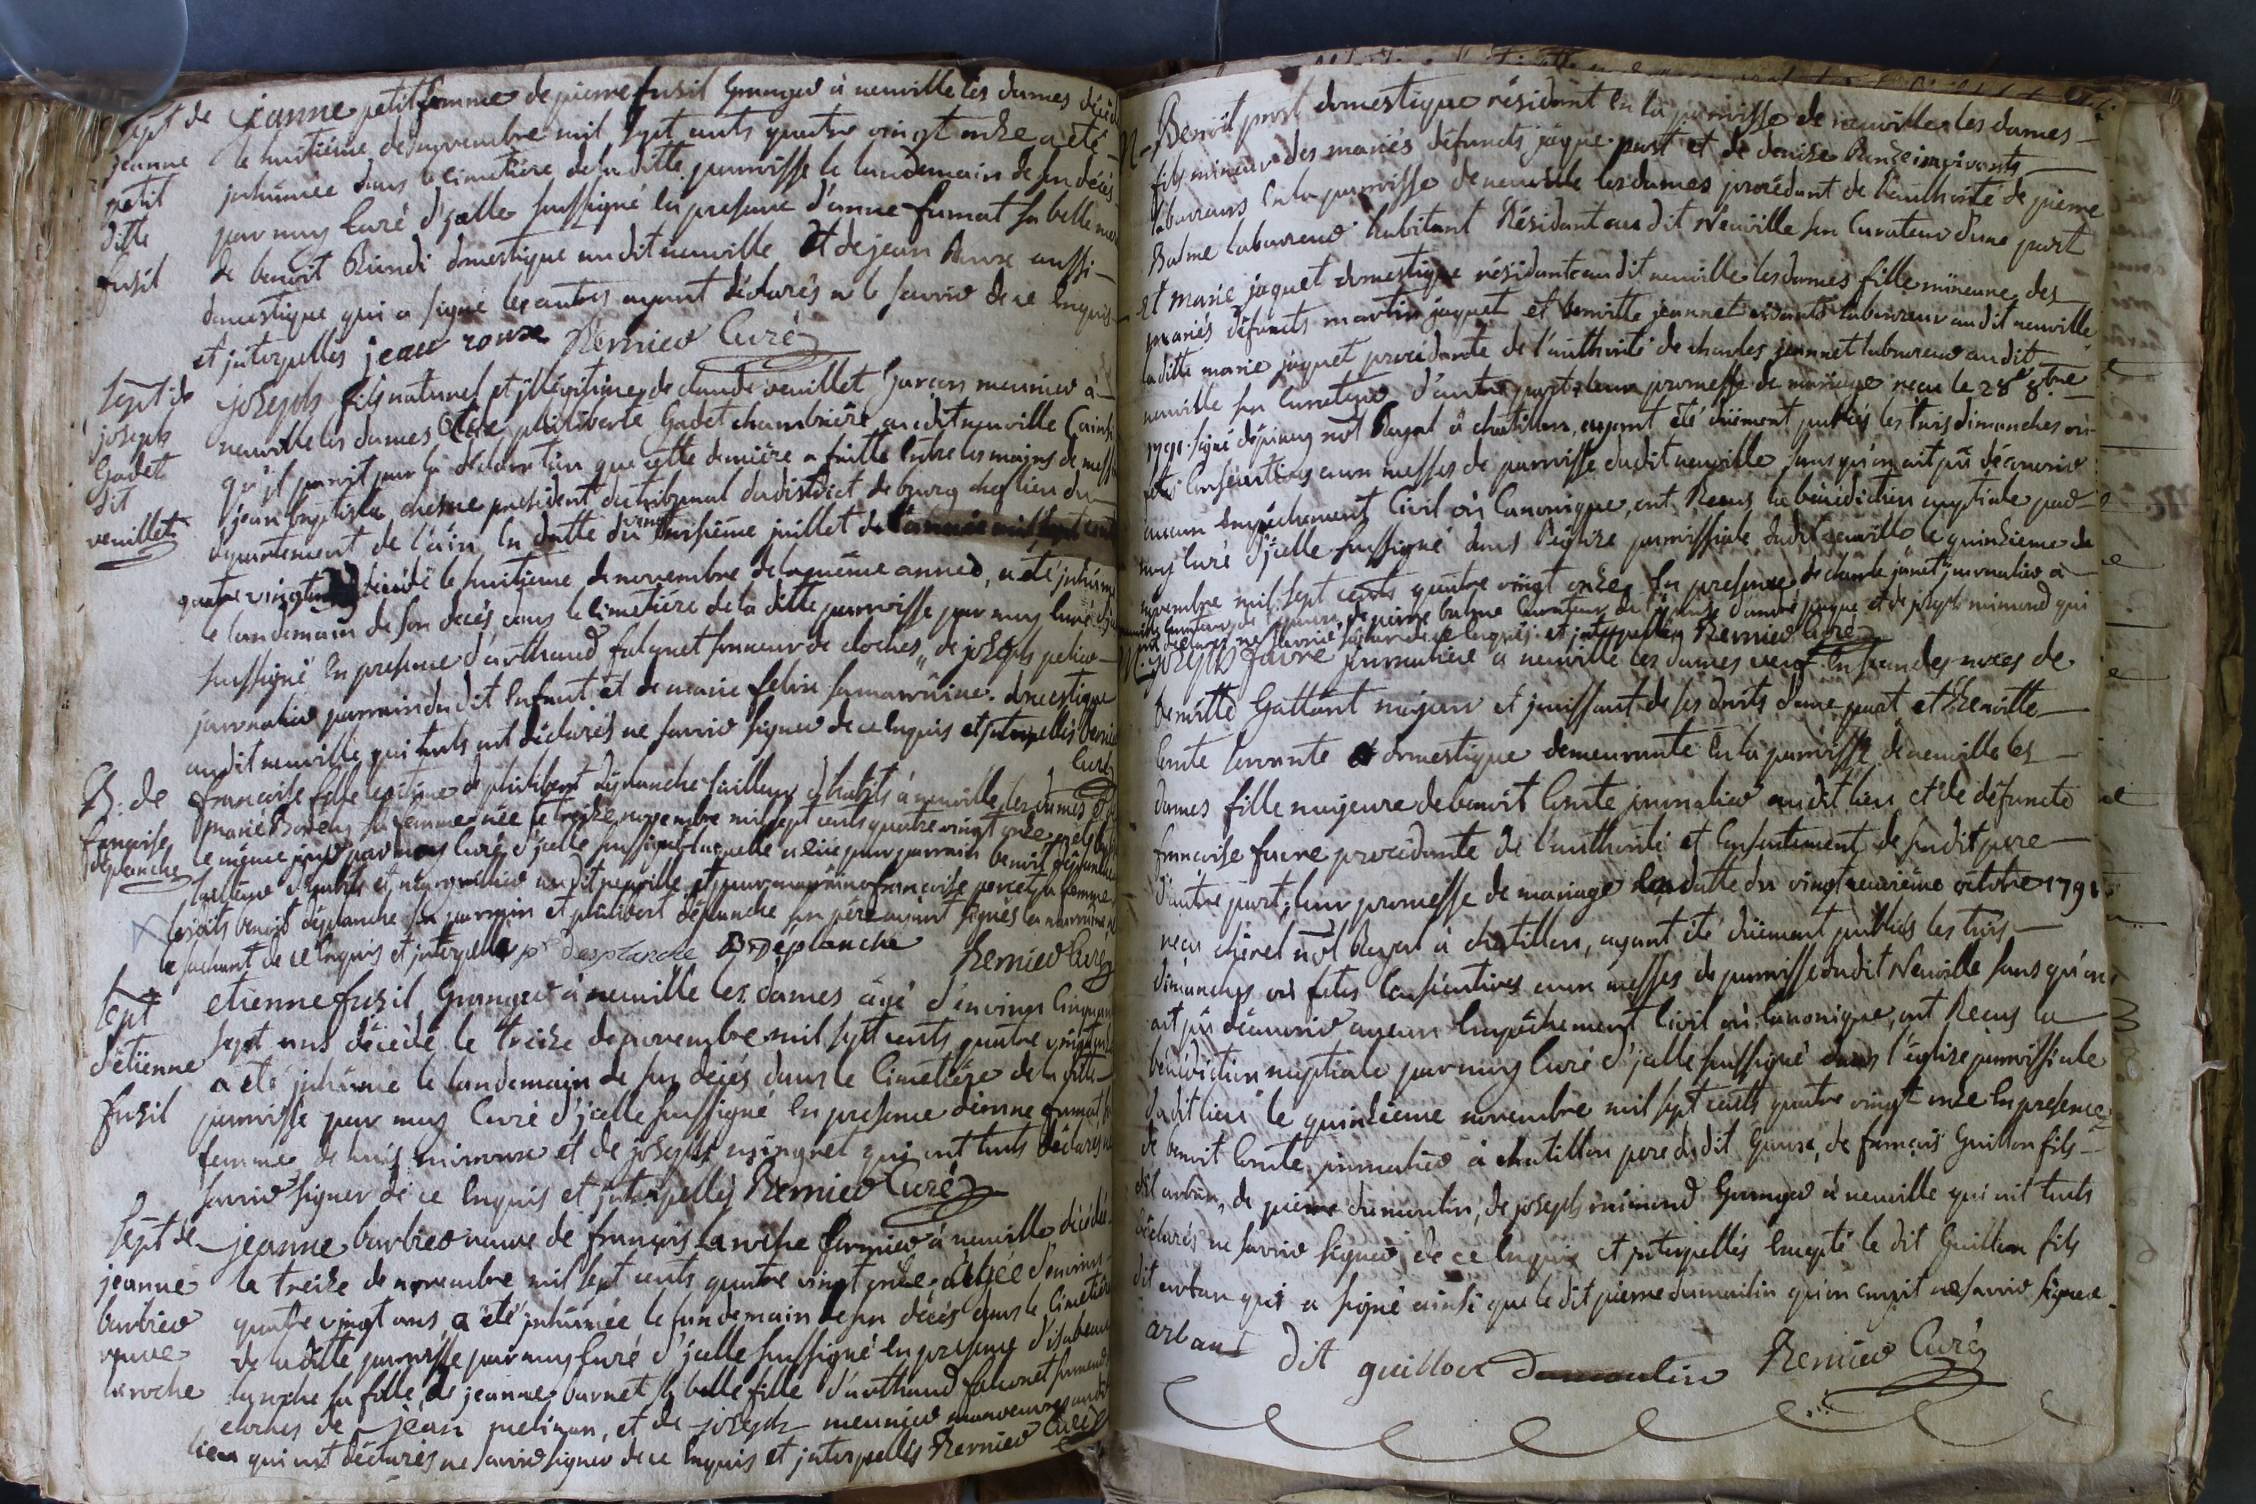 Sept de
jeanne
petit
ditte
fusil
jeanne petit femme de pierre fusil Granger à neuville les dames décéd
le huitième de novembre mil sept cents quatre vingt onze a été
inhumée dans le cimetière de la ditte parroisse le landemain de son décès
par moy Curé d'jcelle soussigné en presence d'anne fumat sa belle
de benoit Riondi domestique audit neuville et de jean Roux aussi
domestique qui a signé les autres ayant déclarés ne le savoir de ce enquis
et interpellés jean roux Bernier Curé
Sept de
joseph
Gadet
dit
veuillet
joseph fils naturel et illégitime de claude veuillet Garçon meunier à
neuville les dames et de philiberte Gadet chambrière audit neuville (ainsi
qu'il paroit par la déclaration que cette dernière a faitte entre les mains de
jean baptiste president du tribunal du district de bourg chef lieu du
département de l'ain en datte du vingt troisième juillet de l'année mil sept cent
quatre vingt décédé le huitième de novembre de la même année, a été inhumé
le landemain de son decès dans le cimetière de la ditte parroisse par moy Curé
soussigné en presence d'arthaud falconet sonneur de cloches, de joseph
journalier parrain du dit enfant et de marie felix sa marraine domestique
audit neuville qui touts ont déclarés ne savoir signer de ce enquis et interpellés Bernier
Curé
B. de
françoise
déplanche
françoise fille légitime de philibert déplanche tailleur d'habits à neuville les dames et
marie sa femme née le treize novembre mil sept cents quatre vingt onze
le même jour par moy Curé d'jcelle soussigné laquelle a eue pour parrain benoit déplanche
tailleur d'habits et audit neuville et pour marraine françoise percet sa femme
lesdits benoit déplanche son parrain et philibert déplanche son père ayant signés la marraine
le sachant de ce enquis et interpellé p desplanche B Déplanche Bernier Curé
Sept
d'étienne
fusil
etienne fusil Granger à neuville les dames âgé d'environ Cinquante
sept ans décédé le treize de novembre mil sept cents quatre vingt onze
a été inhumé le landemain de son décès dans le Cimetière de la ditte
parroisse par moy Curé d'jcelle soussigné en presence d'anne fumat
femme de et de joseph mingret qui ont touts déclarés
savoir signer de ce enquis et interpellés Bernier Curé
Sept de
jeanne
barbier
veuve
laroche
jeanne barbier veuve de françois laroche fermier à neuville décédée
la treize de novembre mil sept cents quatre vingt onze âgée d'environ
quatre vingt ans a été inhumée le landemain de son décès dans le Cimetière
de la ditte parroisse par moy Curé d'jcelle soussigné en presence d'isabeau
laroche sa fille, de jeanne barnet sa belle fille d'arthaud falconet sonneur de
cloches de jean pelizon, et de joseph meunier manoeuvres audit
lieu qui ont déclarés ne savoir signer de ce enquis et interpellés Bernier Curé
M. Benoit post domestique résidant en la parroisse de neuville les dames
fils mineur des mariés défunts jaque post et de denise vivants
laboureurs en la parroisse de neuville les dames procédant de l'authorité de pierre
Balme laboureur habitant Résidant au dit Neuville son Curateur d'une part
et marie jaquet domestique résidante audit neuville les dames fille mineure des
mariés défunts martin jaquet et benoitte jeannet vivants laboureur audit neuville
la ditte marie jaquet procédante de l'authorité de charles jeannet laboureur audit
neuville son Curateur d'autre part, leur promesse de mariage reçu le 28e 8bre
1791 signé dépinay not Royal à chatillon, ayant été dûement publiés les trois dimanches où
fêtes Consécutives aux messes de parroisse du dit neuville sans qu'on ait pû découvrir
aucun empêchement Civil où Canonique, ont Reçus la bénédiction nuptiale par
moy Curé d'jcelle soussigné dans l'église parroissiale du dit neuville le quinzième de
novembre mil sept cents quatre vingt onze en presence de charles janet journalier à
curateur de l'épouse, de pierre balme Curateur de l'époux d'andré jaque et de joseph mimond qui
ont déclarés ne savoir signer de ce enquis et interpellés Bernier Curé
M. joseph favre journalier à neuville les dames veuf en secondes noces de
benoitte Gattant majeur et jouissant de ses droits d'une part et benoitte
Comte servante et domestique demeurante en la parroisse de neuville les
dames fille majeure de benoit Comte journalier audit lieu et de défuncte
françoise favre procédante de l'authorité et Consentement de son dit père
d'autre part, leur promesse de mariage en datte du vingt neuvième octobre 1791
reçu chérel not Royal à chatillon, ayant été dûement publiés les trois
dimanches où fêtes Consécutives aux messes de parroisse du dit Neuville sans qu'on
ait pû découvrir aucun empêchement Civil où Canonique, ont Reçus la
bénédiction nuptiale par moy Curé d'jcelle soussigné dans l'église parroissiale
du dit lieu le quinzième novembre mil sept cents quatre vingt onze en presence
de benoit Comte journalier à chatillon pere du dit de françois Guillon fils
dit arban, de pierre dumoulin, de joseph mimond Granger à neuville qui ont touts
déclarés ne savoir signer de ce enquis et interpellés excepté le dit Guillon fils
dit arban qui a signé ainsi que le dit pierre dumoulin qu'on croyoit ne savoir signer
arban dit guillon Dumoulin Bernier Curé